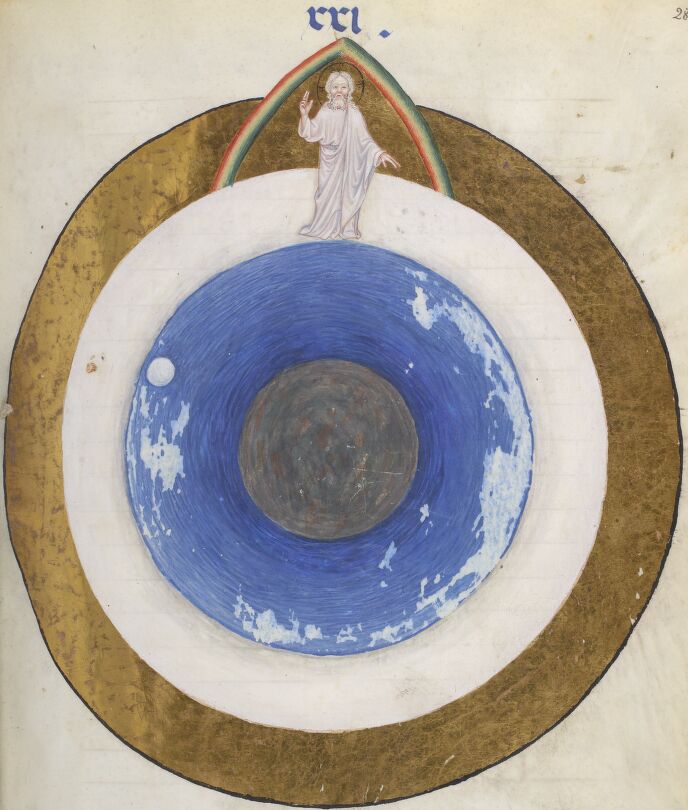 xxi.
28